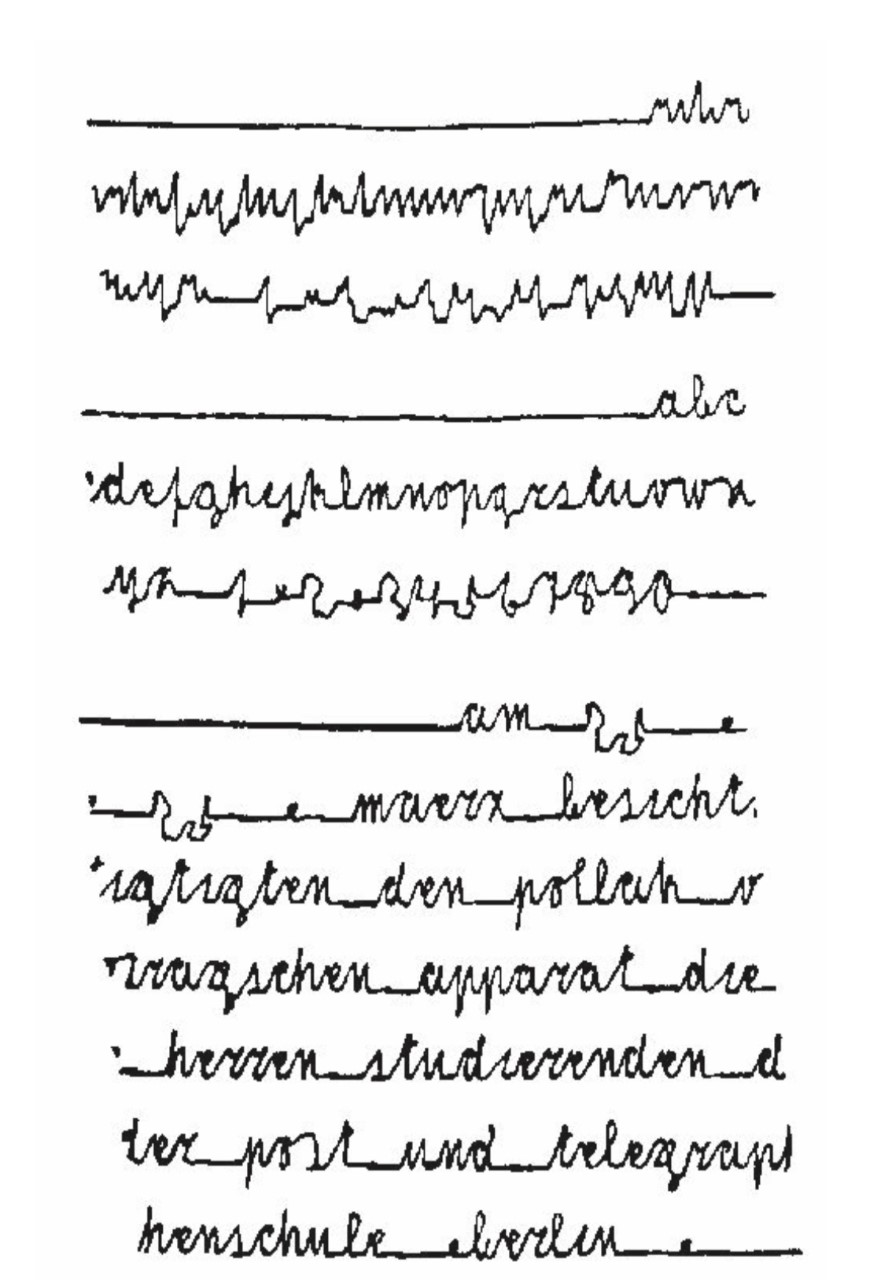 abc
defghijklmnopqrstuvwx
yz 1 2 3 4 5 6 7 8 9 0
am 25
25 maerz besicht
igtigten den pollak v
viragschen apparat die
herren studierenden d
der post und telegraph
henschule berlin